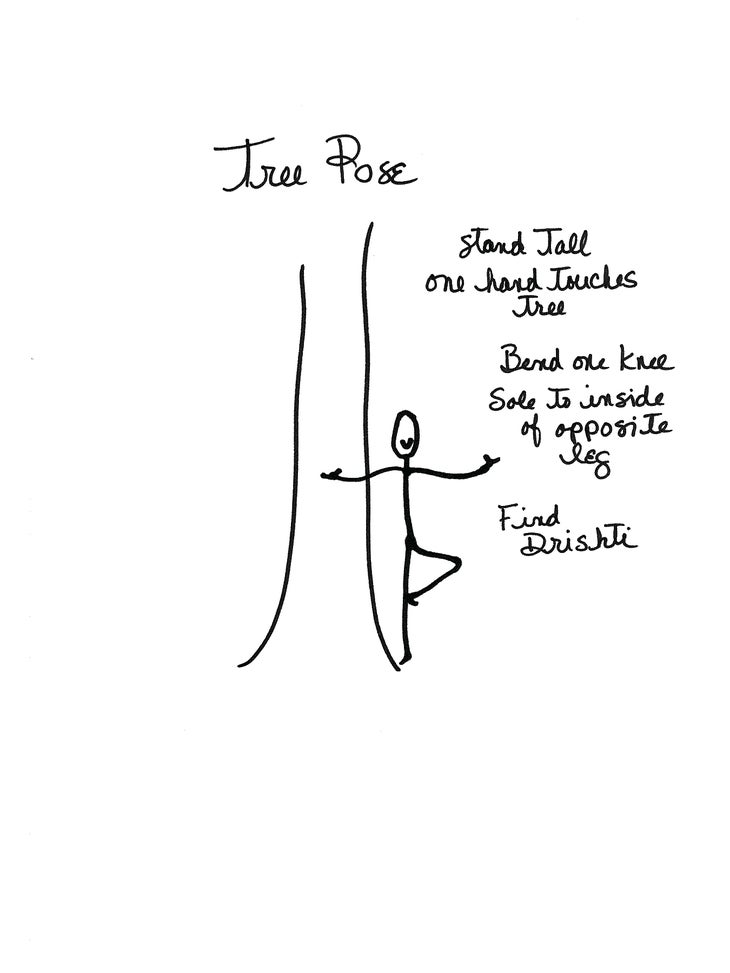 Tree Pose
Stand Tall
one hand Touches
Tree
Bend one knee
Sole to inside
of opposite
leg
Find
Drishti